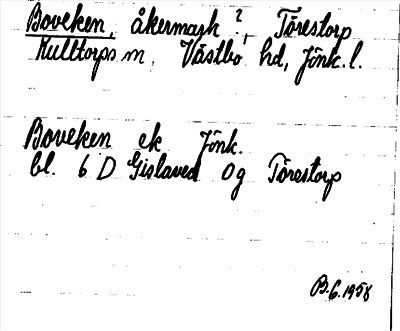 Boveken, åkermark?, Törestorp
Kulltorps sn, Västbo hd, Jönk. l.
Boveken ek Jönk.
bl. 6 D Gislaved 0g Törestorp
B.G. 1958